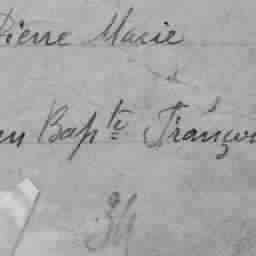 Pierre Marie
en Bapte Françoi
34